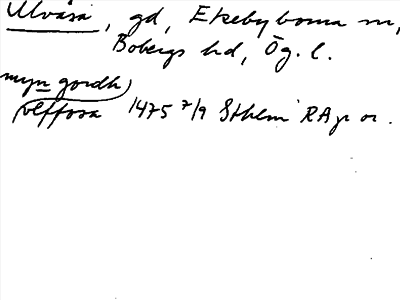 Ulvåsa, gd, Ekebyborna sn,
Bobergs hd, Ög. l.
myn gordh
vlffasa 1475 7/9 Sthlm RAp or.